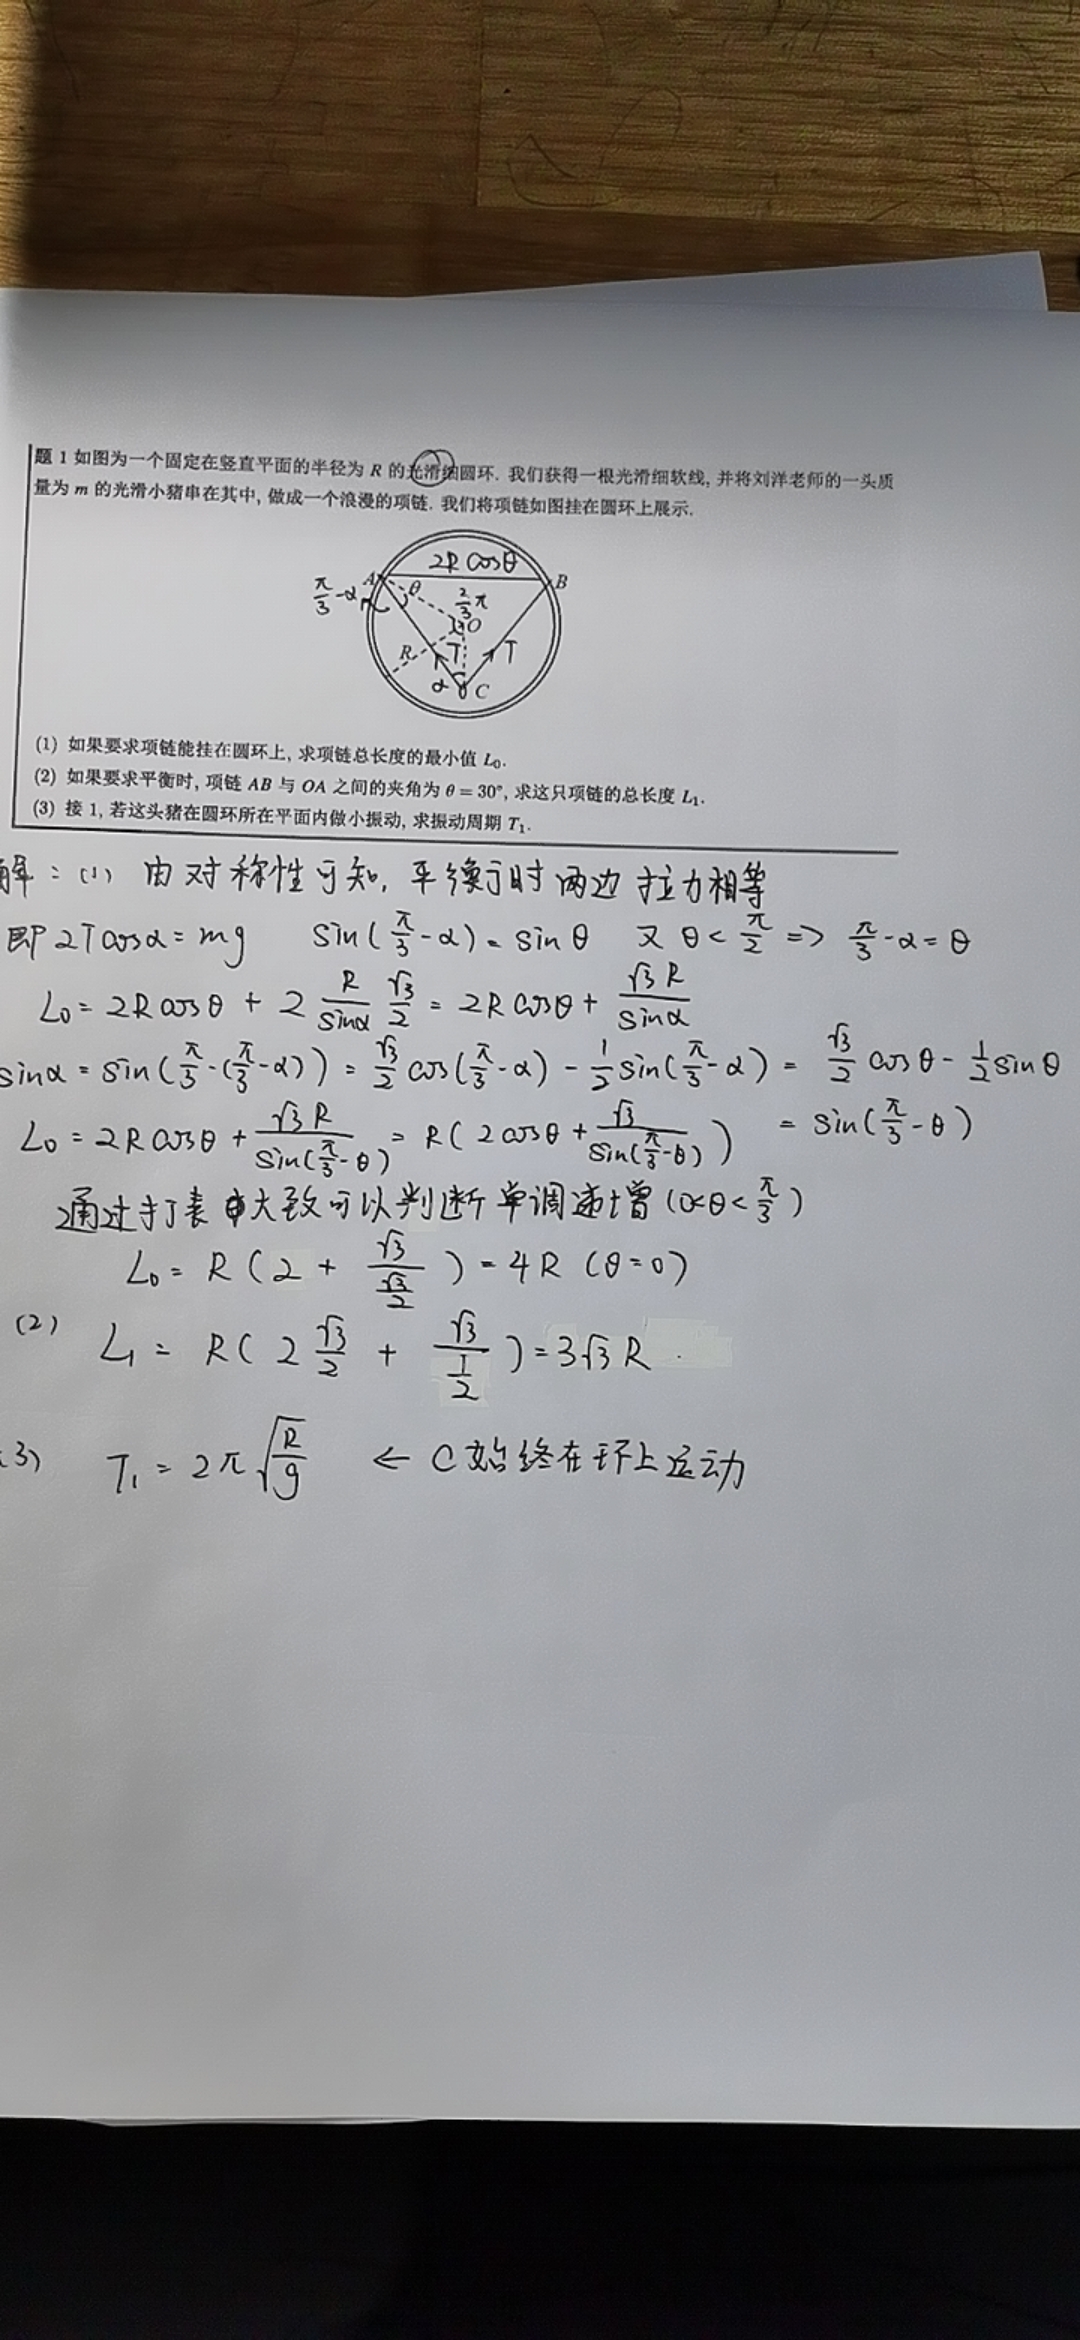 题 1 如图为一个固定在竖直平面的半径为 R 的光滑细圆环. 我们获得一根光滑细软线, 并将刘洋老师的一头质
量为 m 的光滑小猪串在其中, 做成一个浪漫的项链. 我们将项链如图挂在圆环上展示.
2R cosθ
A
B
π/3 - α
θ
2/3 π
O
R
T
T
α
C
(1) 如果要求项链能挂在圆环上, 求项链总长度的最小值 L₀.
(2) 如果要求平衡时, 项链 AB 与 OA 之间的夹角为 θ = 30°, 求这只项链的总长度 L₁.
(3) 接 1, 若这头猪在圆环所在平面内做小振动, 求振动周期 T₁.
解：(1) 由对称性可知, 平衡时两边拉力相等
即 2Tcosα = mg sin(π/3 - α) = sinθ 又 θ < π/2 => π/3 - α = θ
L₀ = 2R cosθ + 2 R/sinα √3/2 = 2R cosθ + √3R/sinα
sinα = sin(π/3 - (π/3 - α)) = √3/2 cos(π/3 - α) - 1/2 sin(π/3 - α) = √3/2 cosθ - 1/2 sinθ
= sin(π/3 - θ)
L₀ = 2R cosθ + √3R/sin(π/3 - θ) = R(2cosθ + √3/sin(π/3 - θ))
通过打表 大致可以判断单调递增 (0<θ<π/3)
L₀ = R(2 + √3/(√3/2)) = 4R (θ=0)
(2) L₁ = R(2 √3/2 + √3/(1/2)) = 3√3 R .
(3) T₁ = 2π√(R/g) ← C始终在环上运动